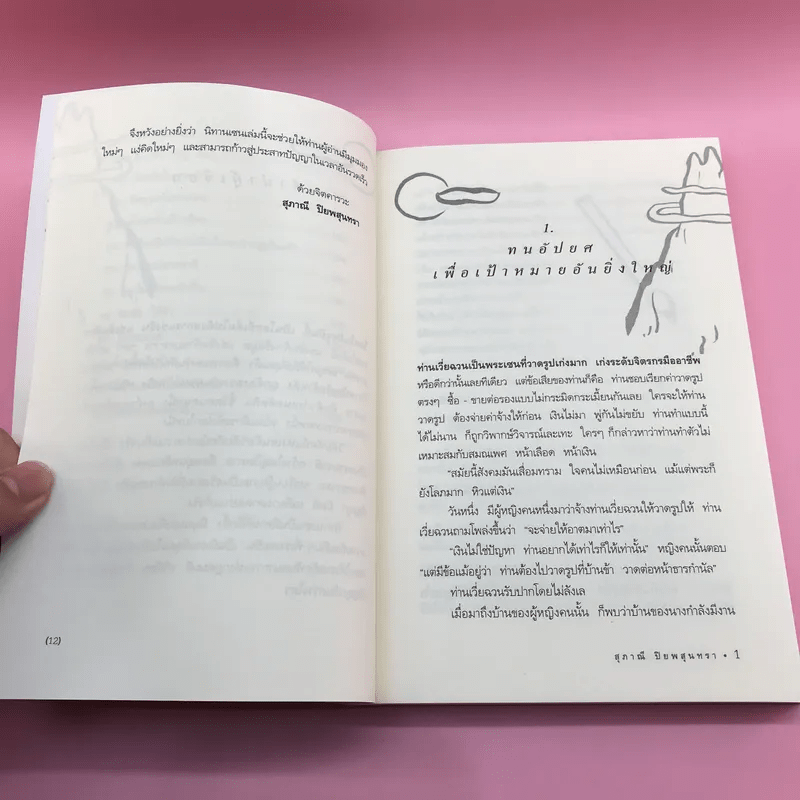 จึงหวังอย่างยิ่งว่า นิทานเซนเล่มนี้จะช่วยให้ท่านผู้อ่านมีมุมมอง
ใหม่ๆ แง่คิดใหม่ๆ และสามารถก้าวสู่ประสาทปัญญาในเวลาอันรวดเร็ว
ด้วยจิตคารวะ
สุภาณี ปิยพสุนทรา
(12)
1.
ทนอัปยศ
เพื่อเป้าหมายอันยิ่งใหญ่
ท่านเวี่ยฉวนเป็นพระเซนที่วาดรูปเก่งมาก เก่งระดับจิตรกรมืออาชีพ
หรือดีกว่านั้นเลยทีเดียว แต่ข้อเสียของท่านก็คือ ท่านชอบเรียกค่าวาดรูป
ตรงๆ ซื้อ - ขายต่อรองแบบไม่กระมิดกระเมี้ยนกันเลย ใครจะให้ท่าน
วาดรูป ต้องจ่ายค่าจ้างให้ก่อน เงินไม่มา พู่กันไม่ขยับ ท่านทำแบบนี้
ได้ไม่นาน ก็ถูกวิพากษ์วิจารณ์และเทะ ใครๆ ก็กล่าวหาว่าท่านทำตัวไม่
เหมาะสมกับสมณเพศ หน้าเลือด หน้าเงิน
"สมัยนี้สังคมมันเสื่อมทราม ใจคนไม่เหมือนก่อน แม้แต่พระก็
ยังโลภมาก หิวแต่เงิน"
วันหนึ่ง มีผู้หญิงคนหนึ่งมาว่าจ้างท่านเวี่ยฉวนให้วาดรูปให้ ท่าน
เวี่ยฉวนถามโพล่งขึ้นว่า "จะจ่ายให้อาตมาเท่าไร"
"เงินไม่ใช่ปัญหา ท่านอยากได้เท่าไรก็ให้เท่านั้น" หญิงคนนั้นตอบ
"แต่มีข้อแม้อยู่ว่า ท่านต้องไปวาดรูปที่บ้านข้า วาดต่อหน้าธารกำนัล"
ท่านเวี่ยฉวนรับปากโดยไม่ลังเล
เมื่อมาถึงบ้านของผู้หญิงคนนั้น ก็พบว่าบ้านของนางกำลังมีงาน
สุภาณี ปิยพสุนทรา • 1